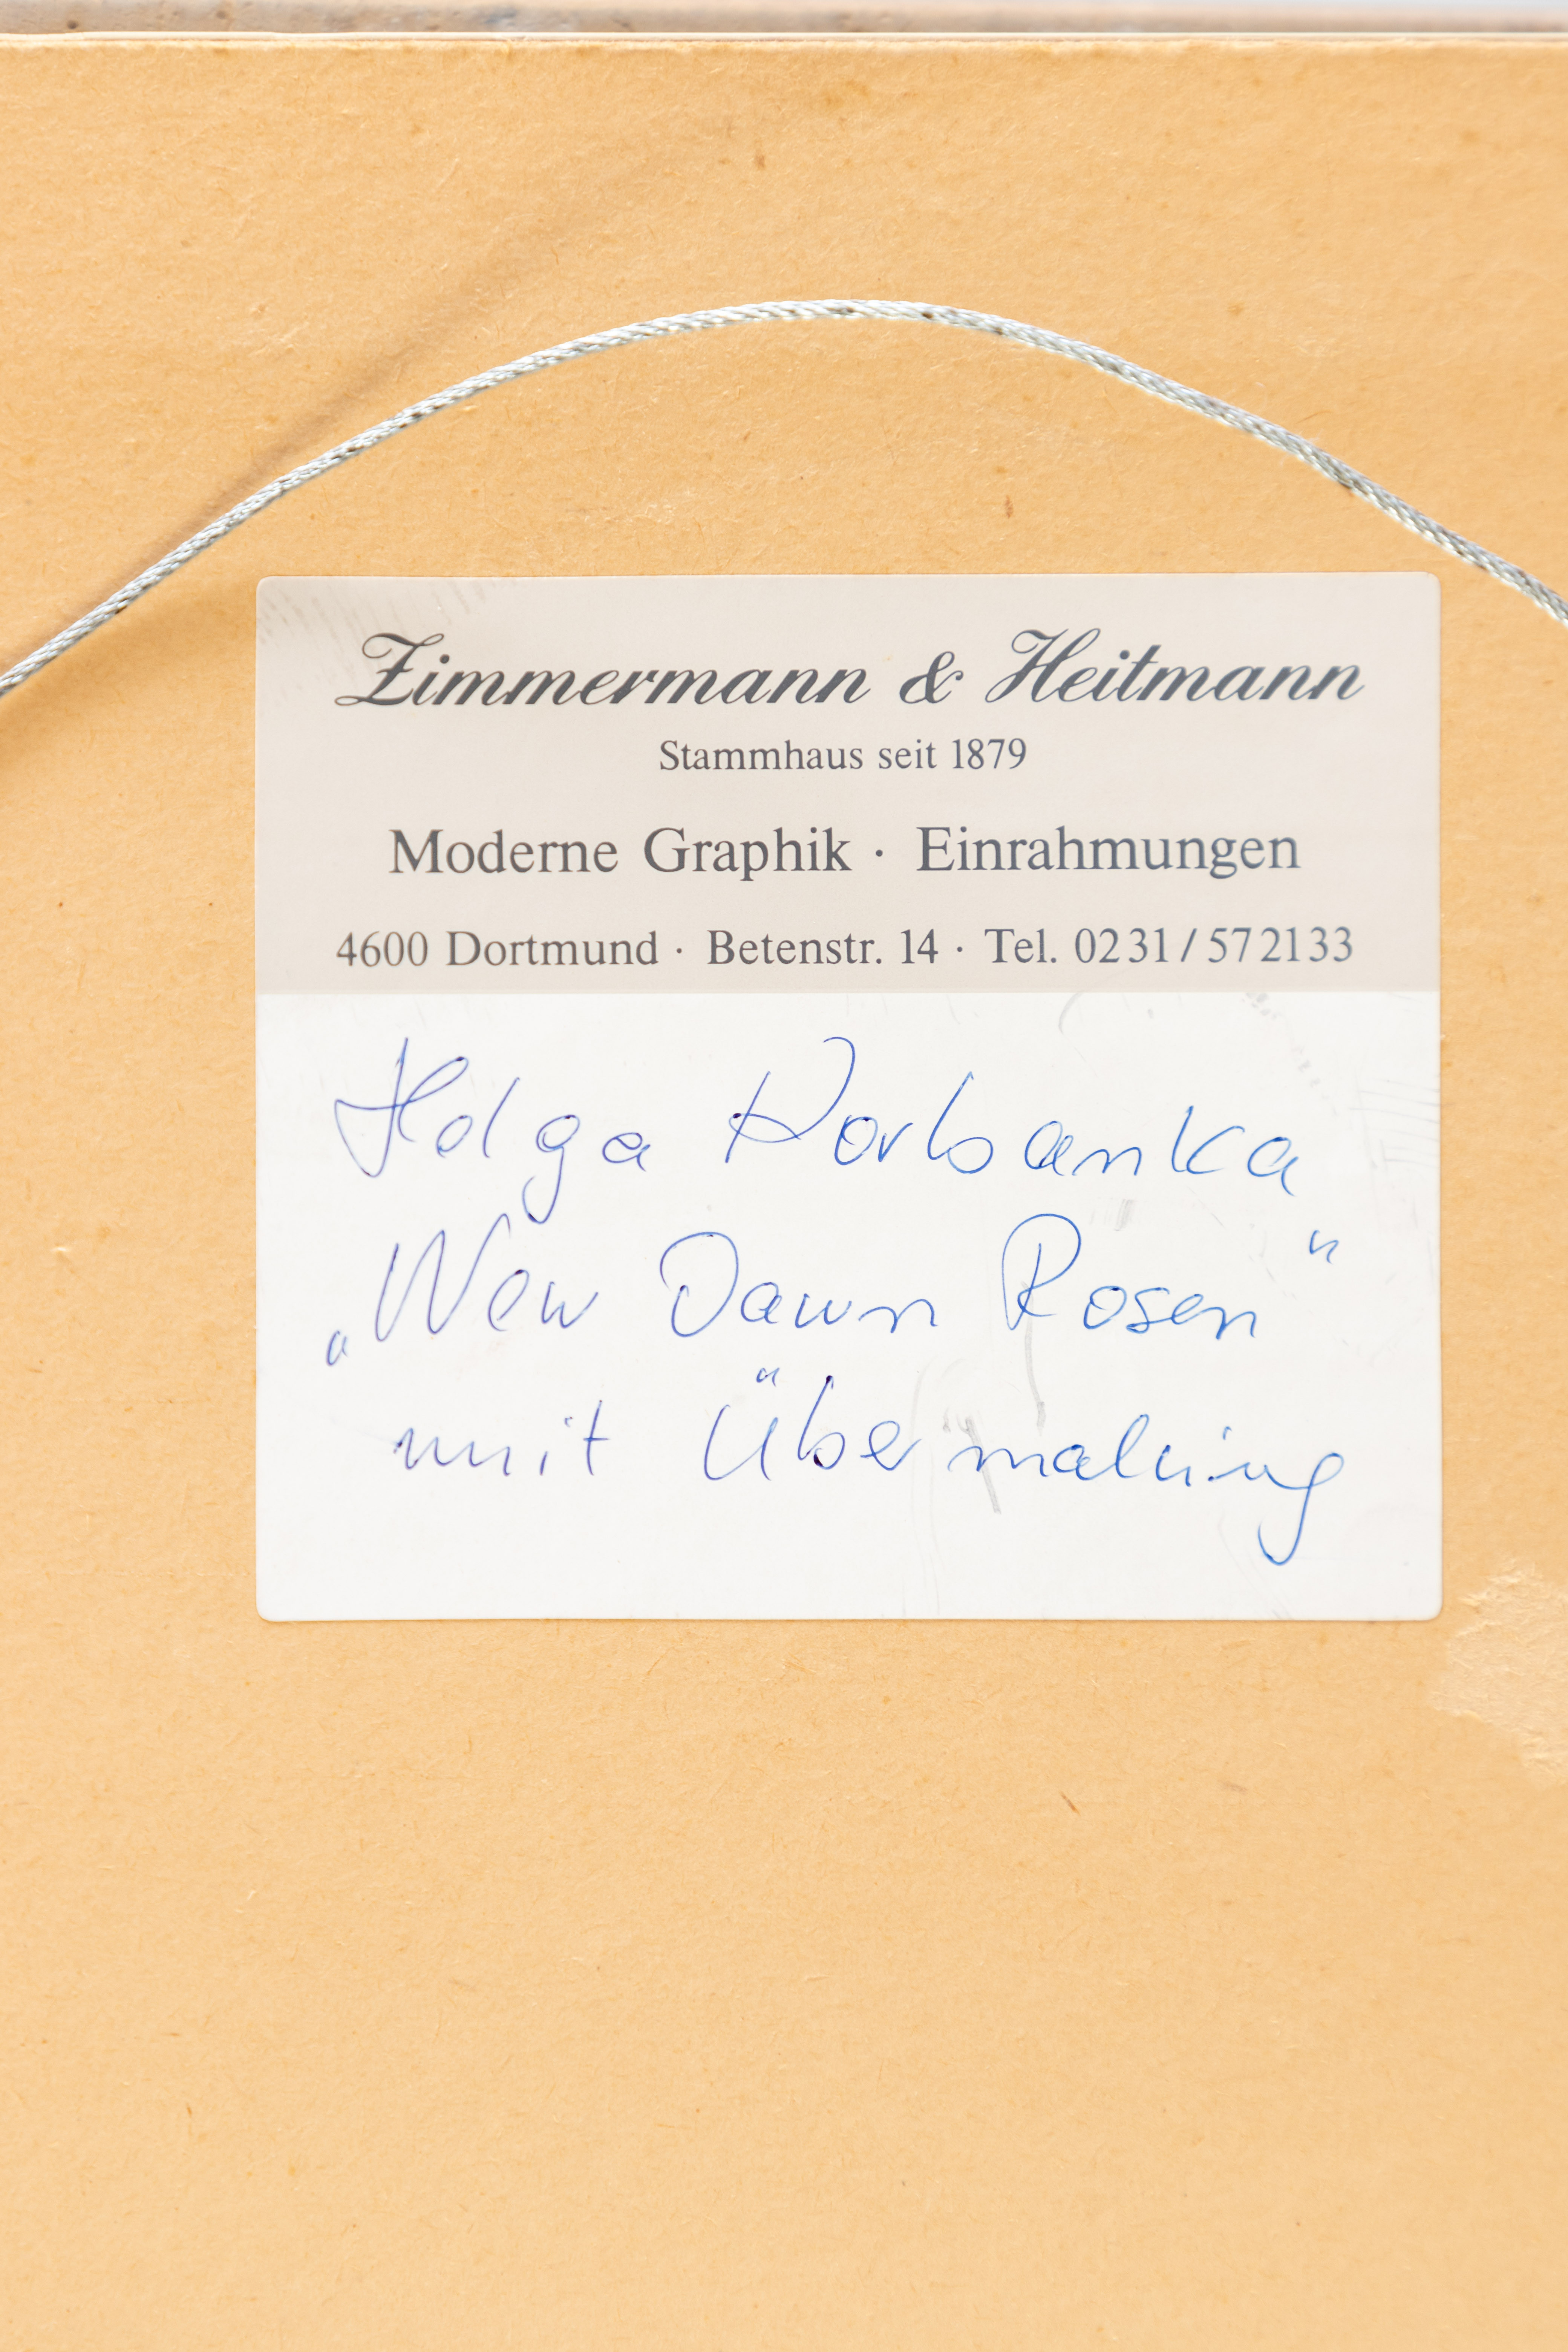 Zimmermann & Heitmann
Stammhaus seit 1879
Moderne Graphik · Einrahmungen
4600 Dortmund · Betenstr. 14 · Tel. 0231/572133
Helga
„New Dawn Rosen“
mit Übermalung